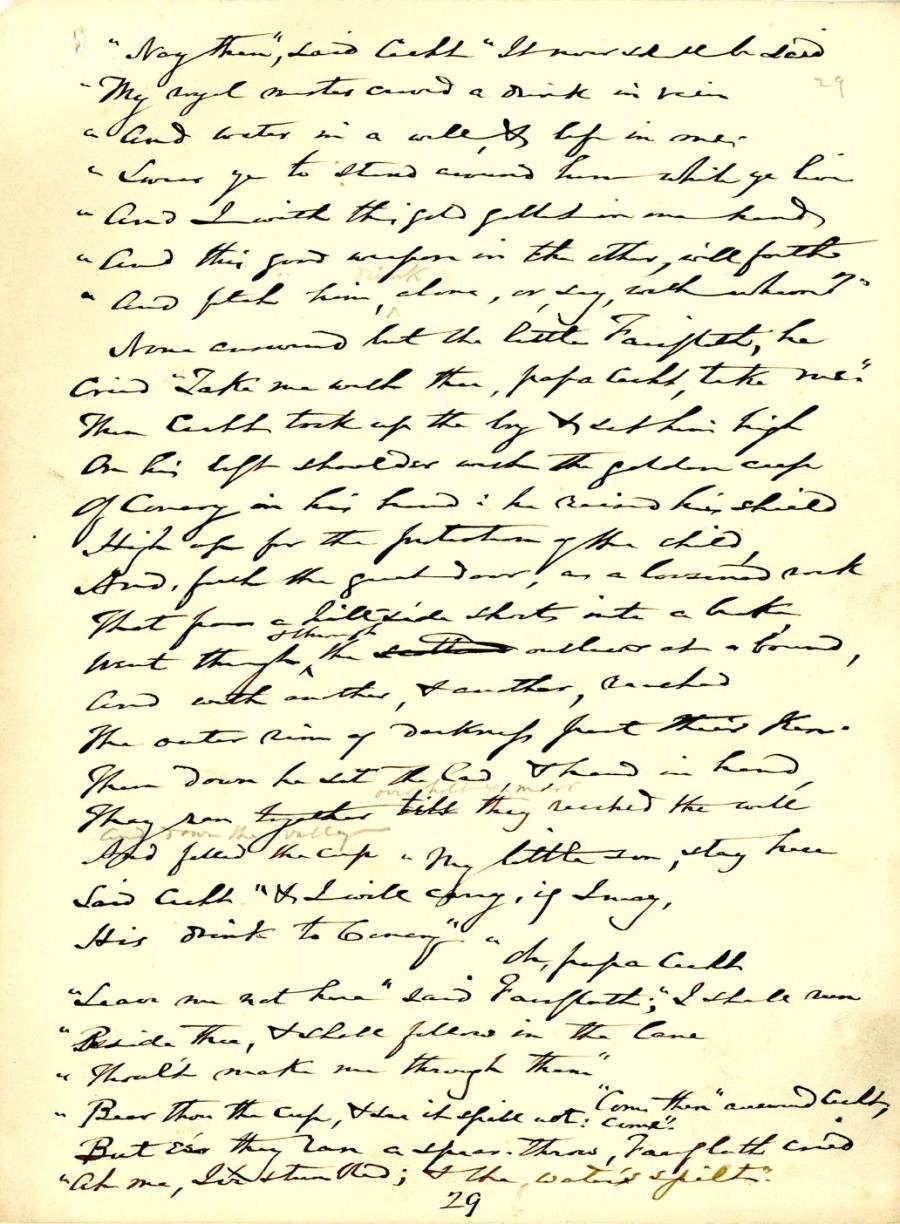 29
"Nay then", said Cecht "It now shall be said
"My royal master craved a drink in vain
"And water in a well, & life in me.
"Swear ye to stand around him while ye live
"And I with this gold goblet in one hand,
"And this good weapon in the other, will forth
drink
"And fetch him, alone, or, say, with whom?"
None answered but the little Fairfleth; he
Cried "Take me with thee, papa Cecht, take me."
Then Cecht took up the boy & set him high
On his left shoulder with the golden cup
Of Conary in his hand: he raised his shield
High up for the protection of the child,
And, forth the great door, as a loosened rock
That from a hill-side shoots into a lake,
& through
Went through, the outlaws at a bound,
And with another, & another, reached
The outer rim of darkness past their ken.
Then down he set the lad, & hand in hand,
over hill & moor
They ran together till they reached the well
And down the valley
And filled the cup "My little son, stay here
Said Cecht "& I will carry, if I may,
His drink to Conary" "Oh, papa Cecht
"Leave me not here" said Fairfleth; "I shall run
"Beside thee, & shall follow in the lane
"Thou'lt make me through them"
"Come then" answered Cecht,
"Bear thou the cup, & see it spill not: come."
But ere they ran a spear-throw, Fairfleth cried
"Ah me, I've stumbled; & the water's spilt".
29